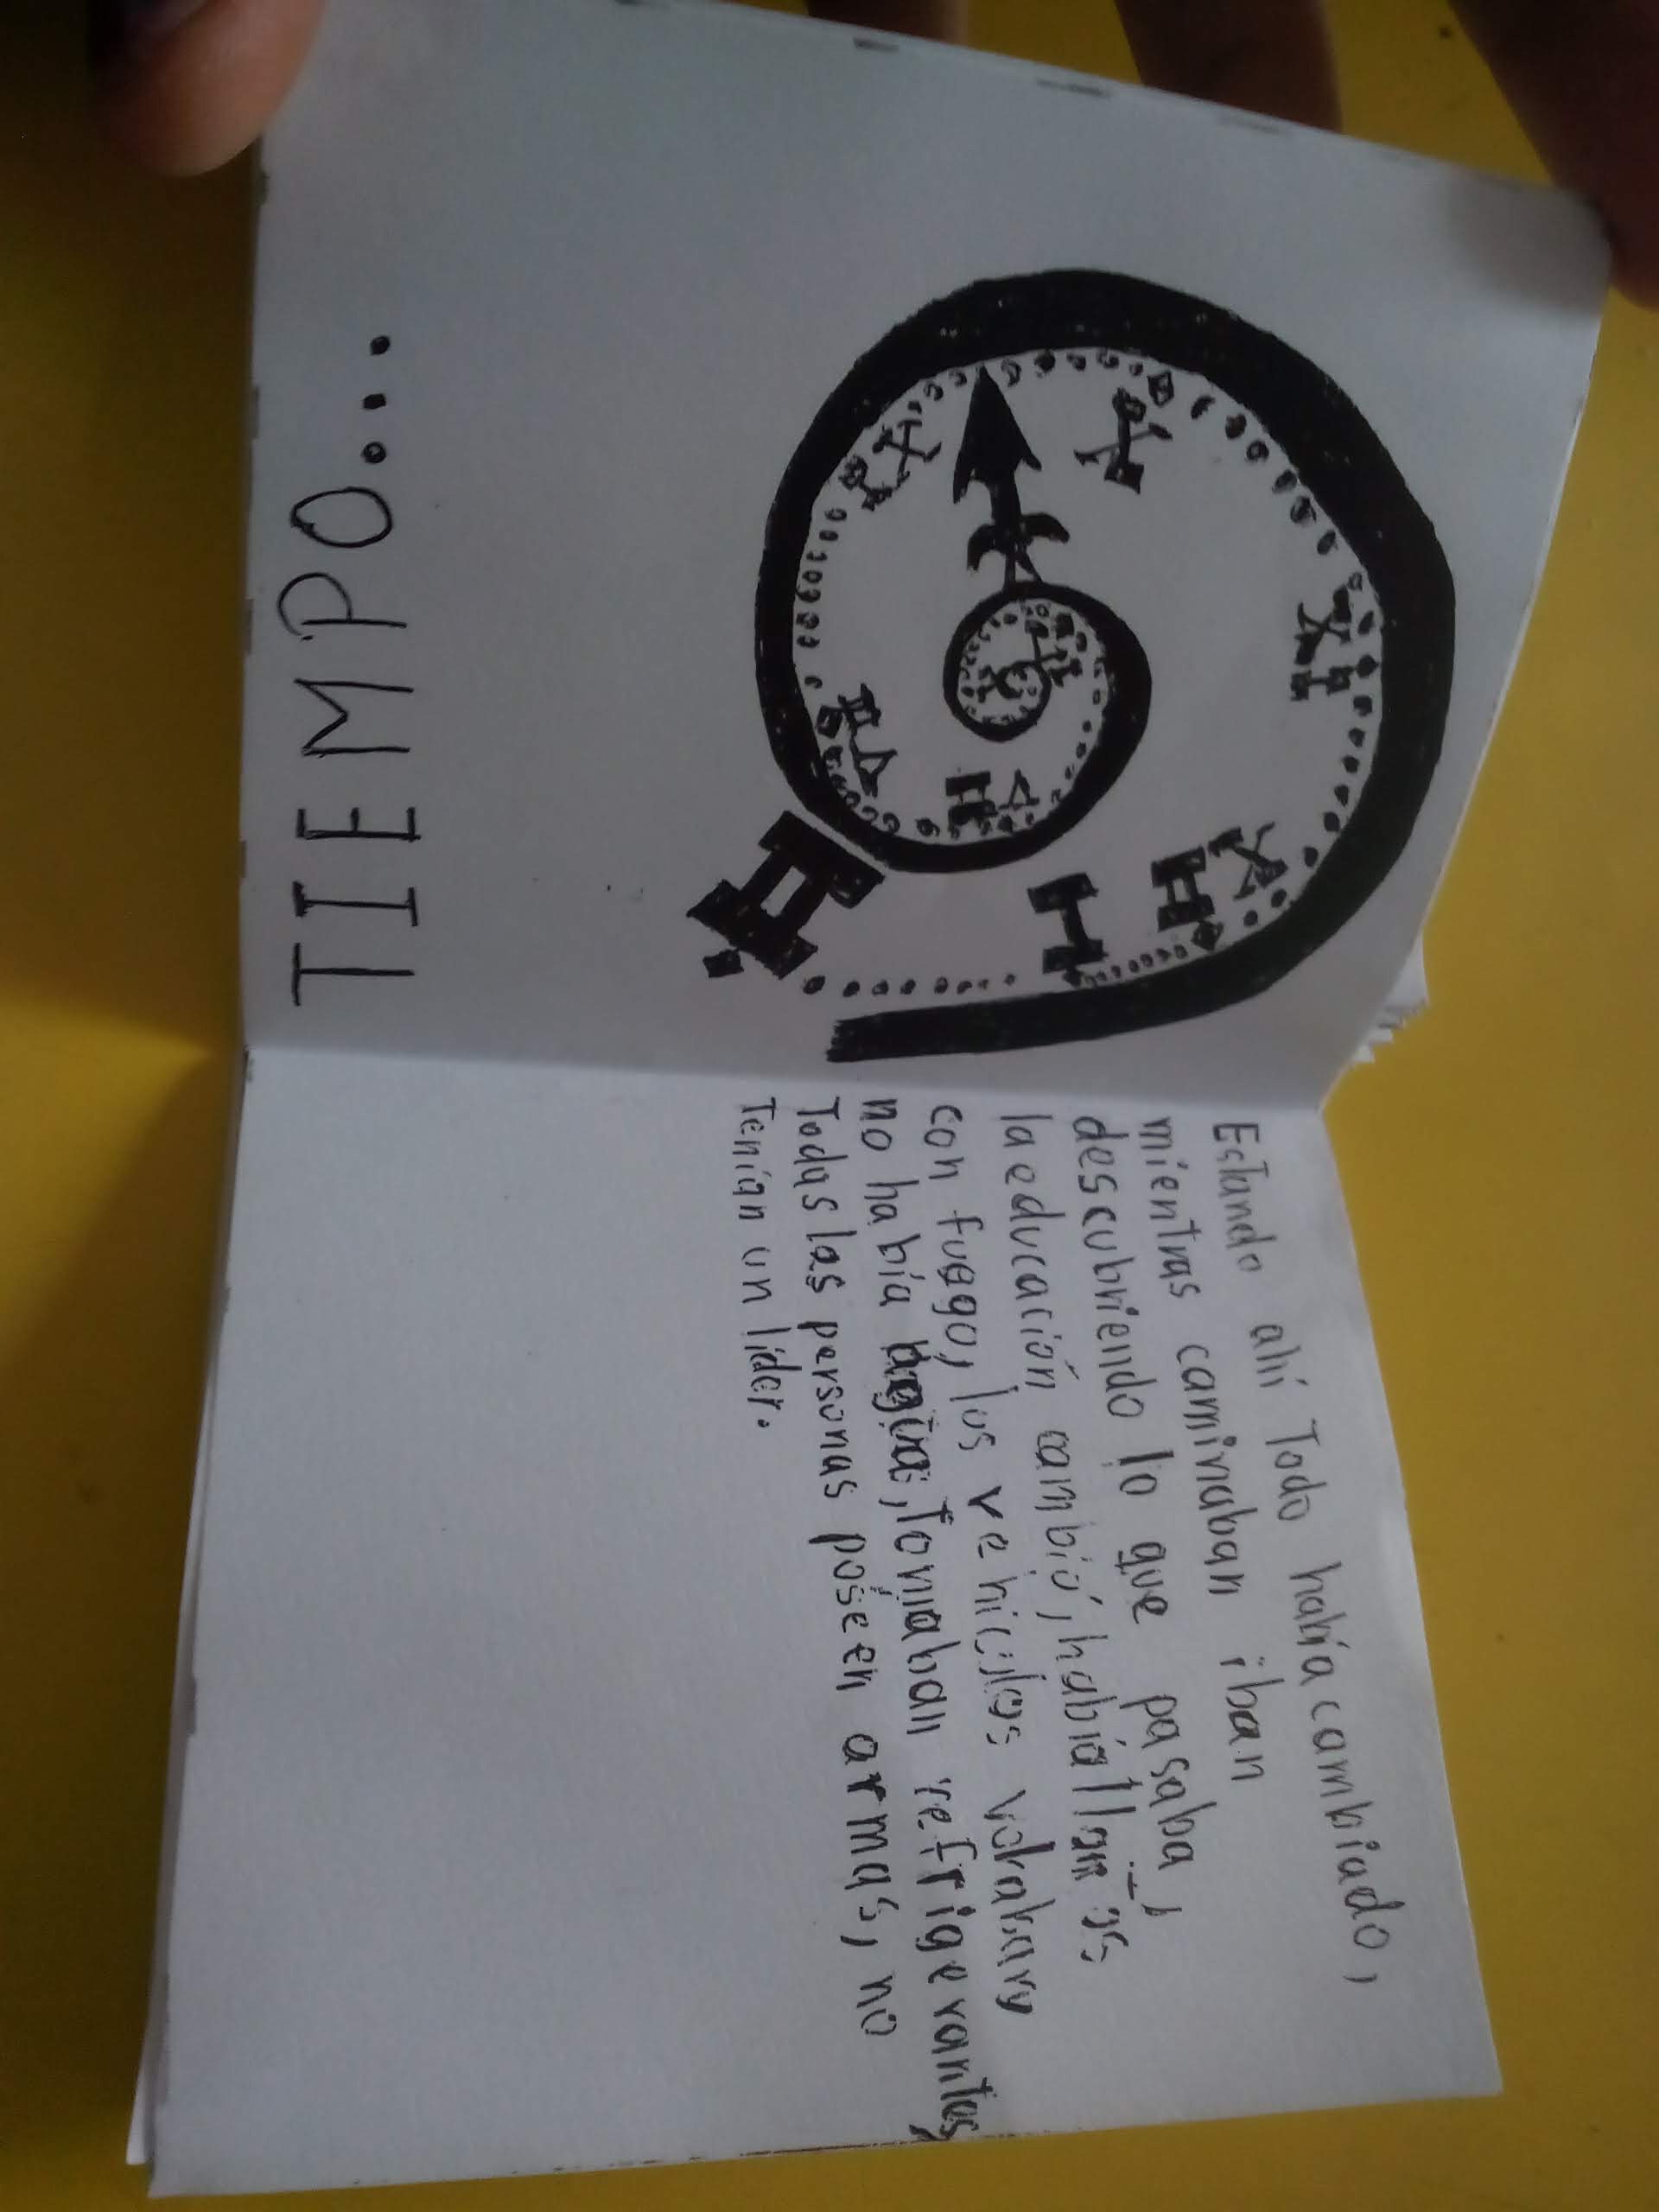 TIEMPO...
Estando ahí Todo había cambiado,
mientras caminaban iban
descubriendo lo que pasaba,
la educación cambió, había llantas
con fuego, los vehículos volaban y
no había agua, Tomaban refrigerantes,
Todas las personas poseen armas, no
Tenían un líder.